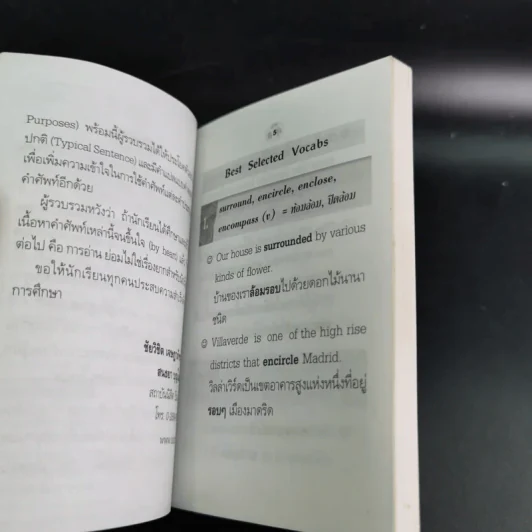 Purposes) พร้อมนี้ผู้รวบรวมได้ให้ประโยค
ปกติ (Typical Sentence) และมีคำแปล
เพื่อเพิ่มความเข้าใจในการใช้คำศัพท์แต่ละ
คำศัพท์อีกด้วย
ผู้รวบรวมหวังว่า ถ้านักเรียนได้ศึกษา
เนื้อหาคำศัพท์เหล่านี้จนขึ้นใจ (by heart) แล้ว
ต่อไป คือ การอ่าน ย่อมไม่ใช่เรื่องยากสำหรับ
ขอให้นักเรียนทุกคนประสบความสำเร็จ
การศึกษา
ชัยวิชิต
โทร.
5
Best Selected Vocabs
1.
surround, encircle, enclose,
encompass (v) = ห้อมล้อม, ปิดล้อม
Our house is surrounded by various
kinds of flower.
บ้านของเราล้อมรอบไปด้วยดอกไม้นานา
ชนิด
Villaverde is one of the high rise
districts that encircle Madrid.
วิลล่าเวิร์ดเป็นเขตอาคารสูงแห่งหนึ่งที่อยู่
รอบๆ เมืองมาดริด